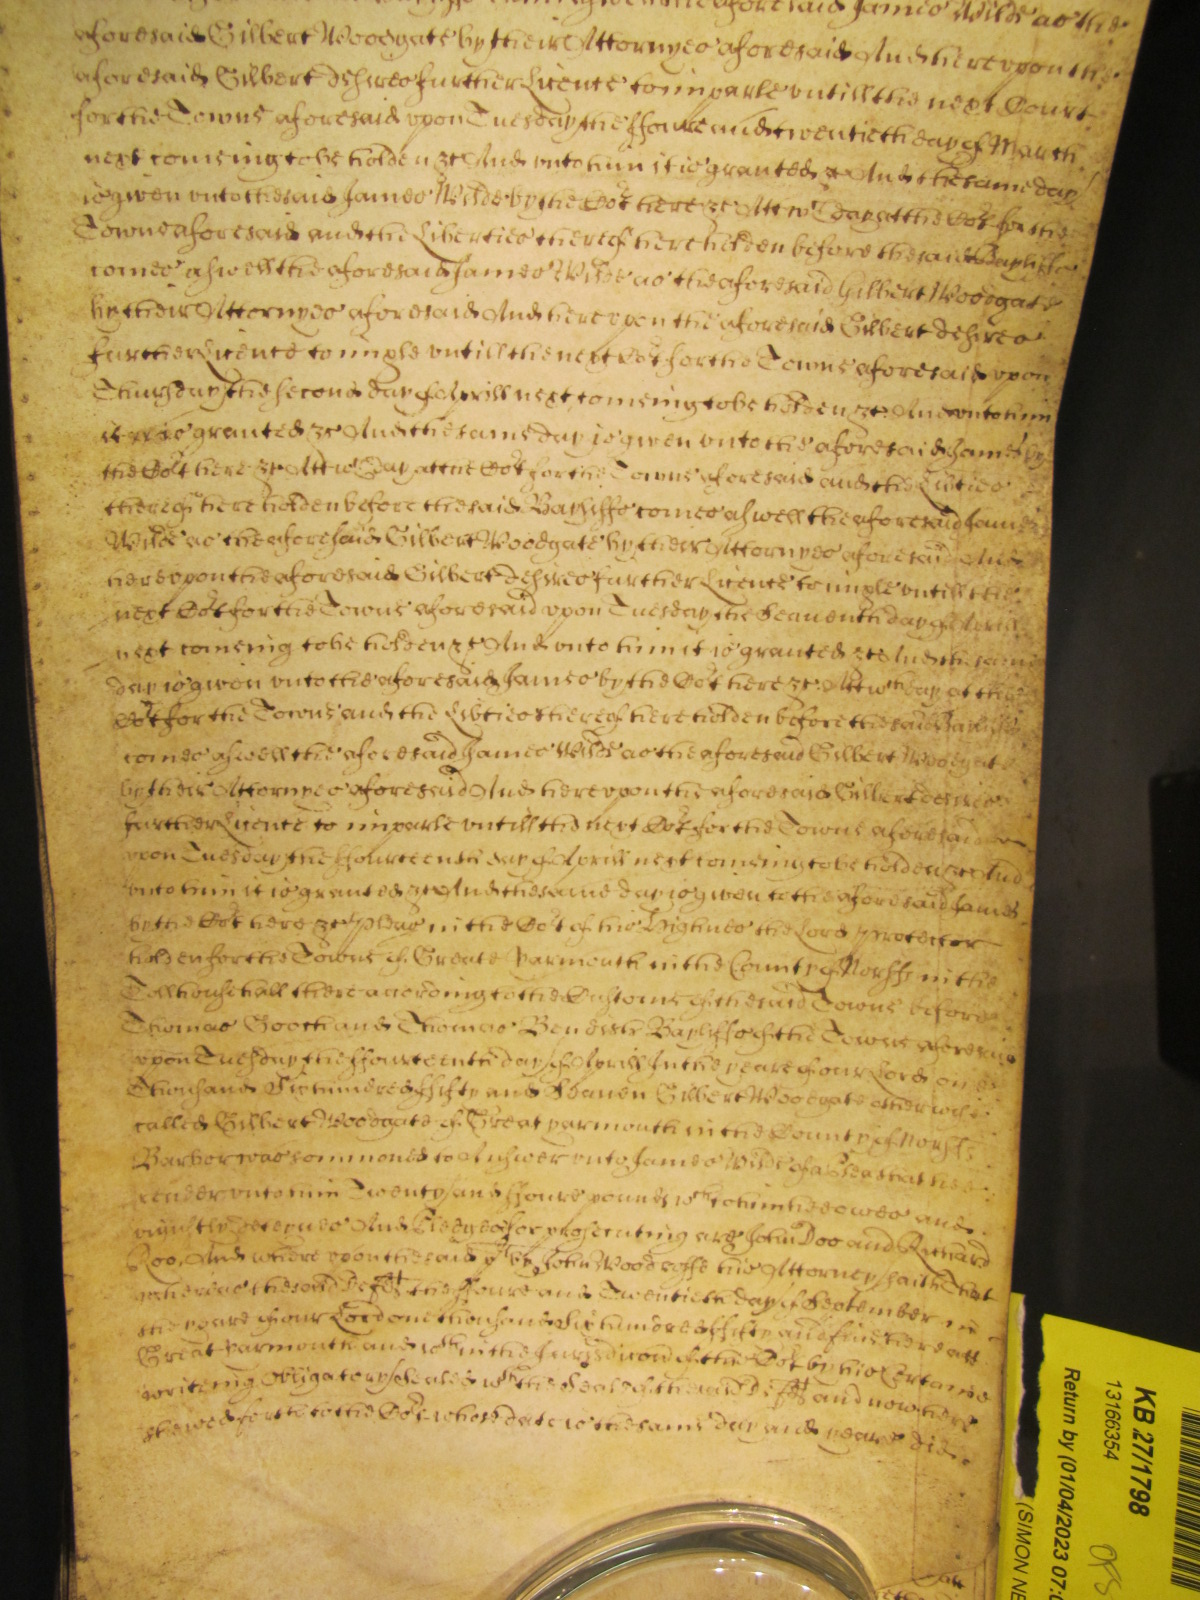 aforesaid James Wilde as the
aforesaid Gilbert Woodgate by their Attornyes aforesaid And hereupon the
aforesaid Gilbert desires further Licence to imparle untill the next Court
for the Towne aforesaid upon Tuesday the ffoure and twentieth day of March
next comeing to be holden &c And unto him it is granted &c And the same day
is given unto the said James Wilde by the Cort here &c Att wch day at the Cort for the
Towne aforesaid and the Liberties thereof here holden before the said Bayliffs
comes aswell the aforesaid James Wilde as the aforesaid Gilbert Woodgate
by their Attornyes aforesaid And hereupon the aforesaid Gilbert desires
further Licence to imple untill the next Cort for the Towne aforesaid upon
Thursday the second day of Aprill next comeing to be holden &c And unto him
it is granted &c And the same day is given unto the aforesaid James by
the Cort here &c Att wch Day at the Cort for the Towne aforesaid and the Libties
thereof here holden before the said Bayliffs comes aswell the aforesaid James
Wilde as the aforesaid Gilbert Woodgate by their Attornyes aforesaid And
hereupon the aforesaid Gilbert desires further Licence to imple untill the
next Cort for the Towne aforesaid upon Tuesday the Seaventh day of Aprill
next comeing to be holden &c And unto him it is granted &c And the same
day is given unto the aforesaid James by the Cort here &c Att wch day at the
Cort for the Towne and the Libties thereof here holden before the said Bayliffs
comes aswell the aforesaid James Wilde as the aforesaid Gilbert Woodgate
by their Attornyes aforesaid And hereupon the aforesaid Gilbert desires
further Licence to imparle untill the next Cort for the Towne aforesaid
upon Tuesday the ffourteenth day of Aprill next comeing to be holden &c And
unto him it is granted &c And the same day is given to the aforesaid James
by the Cort here &c Pleas in the Cort of his Highnes the Lord Protector
holden for the Towne of Greate Yarmouth in the County of Norff in the
Tollhouse hall there according to the Custome of the said Towne before
Thomas Gooch and Thomas Bendish Bayliffs of the Towne aforesaid
upon Tuesday the ffourteenth day of Aprill In the yeare of our Lord one
thousand Six hundred ffifty and Seaven Gilbert Woodgate otherwise
called Gilbert Woodgate of Great Yarmouth in the County of Norff
Barbor was sommoned to Answer unto James Wilde of a Plea that hee
render unto him Twenty and ffoure pounds wch to him hee owes and
uniustly deteynes And Pledges for prosecuting are John Doo and Richard
Roo. And where upon the said pt by John Woodroffe his Attorney saith That
whereas the said Defft the ffoure and Twentieth day of September in
the yeare of our Lord one thousand Six hundred ffifty and five here att
Great Yarmouth and wthin the Jurisdiccon of the Cort by his Certaine
writeing Obligatory sealed wth the Seale of the said Defft and now here
shewed forth to the Cort whose date is the same day and yeare did
KB 27/1798
13166354
Return by (01/04/2023 07:
(SIMON NE